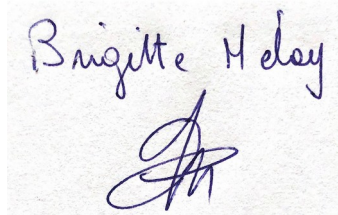 Brigitte Meloy